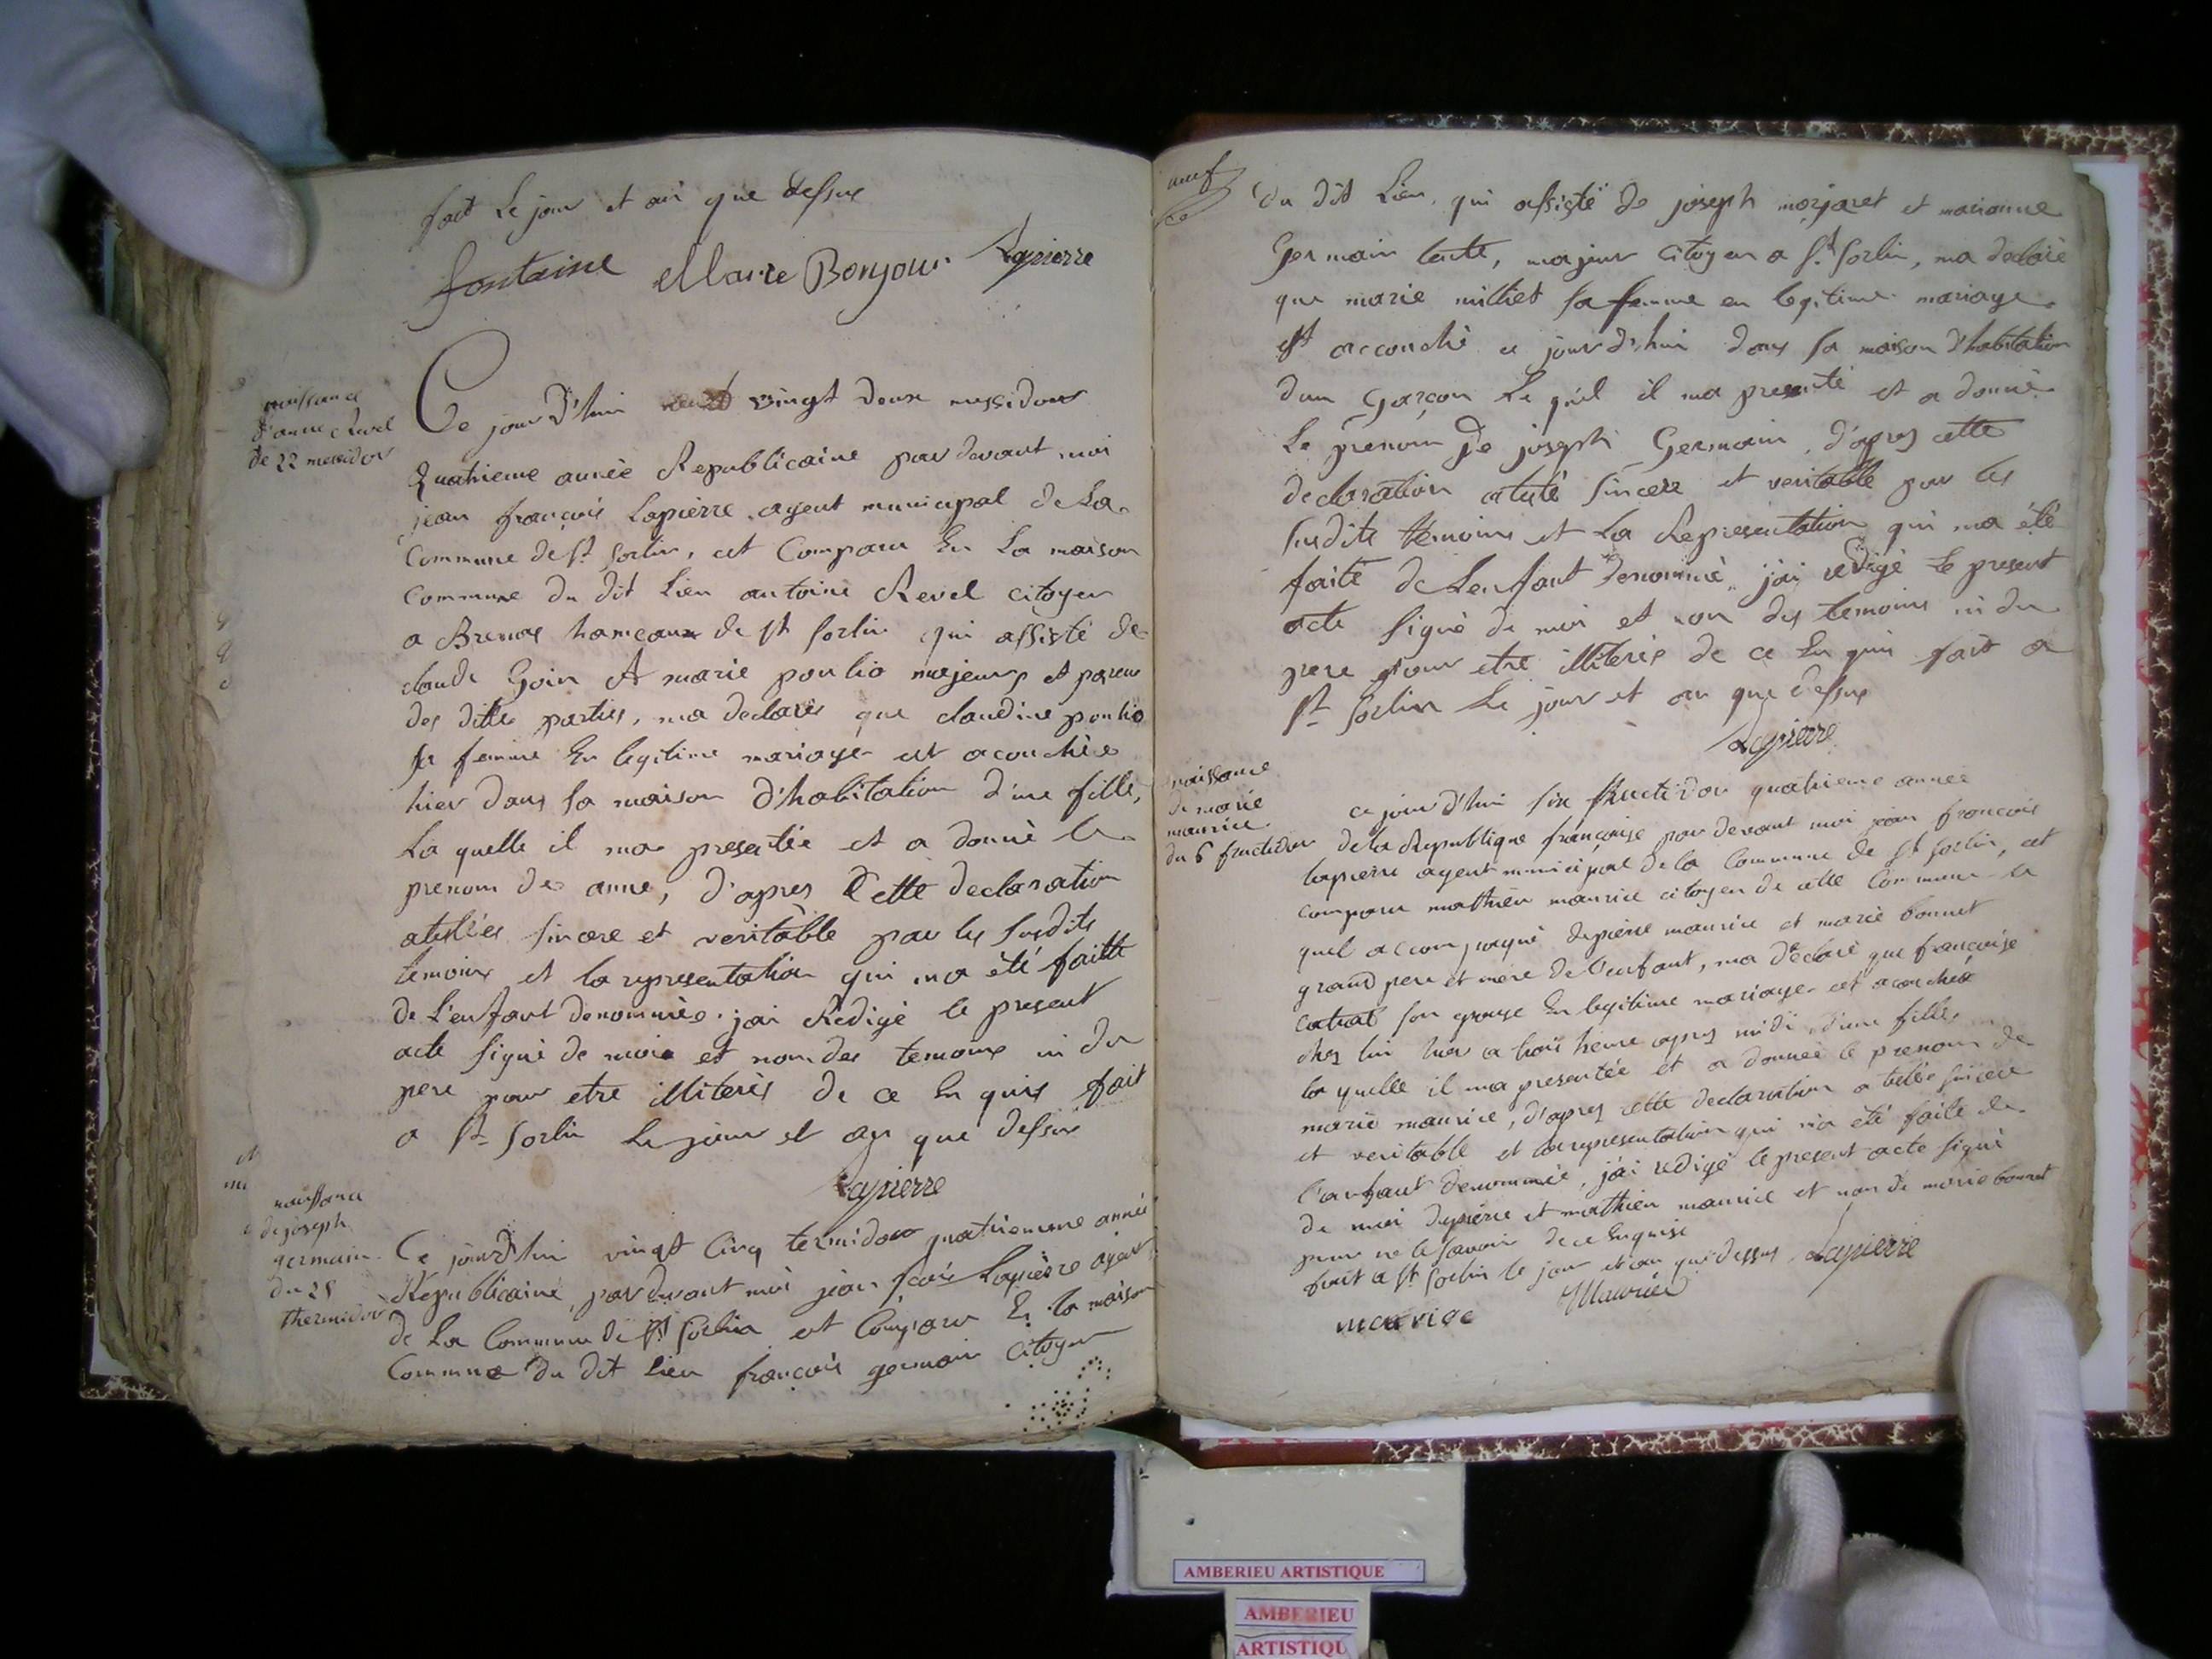 fait Le jour et an que dessus
fontaine Marie Bonjour Lapierre
naissance
d'anne Revel
de 22 messidor
Ce jour d'hui vingt deux messidor
Quatrieme année Republicaine par devant moi
jean françois Lapierre agent municipal de La
Commune de St Sorlin, est Comparu En La maison
Commune du dit Lieu antoine Revel citoyen
a Brenas hameaux de st sorlin qui assisté de
claude Goin et marie poulio majeurs et parens
des dittes parties, ma declarés que claudine poulio
sa femme En legitime mariage est acouchèe
hier dans sa maison d'habitation d'une fille,
La quelle il ma presentée et a donné le
prenom de anne, d'apres Cette declaration
atestées sincere et veritable par les susdits
temoins et la representation qui ma été faitte
de L'enfant denommés. jai Redigé le present
acte signé de moi et non des temoins ni du
pere pour etre illiterés de ce En quis fait
a St Sorlin Le jour et an que dessus
Lapierre
naissance
de joseph
germain
du 25
thermidor
Ce jourd'hui vingt Cinq termidor quatriemme année
Republicaine, par devant moi jean fcois Lapierre agent
de La Commune de St Sorlin est Comparu En la maison
Commune du dit Lieu françois germain Citoyen
neuf
du dit Lieu, qui assisté de joseph morjaret et marianne
Germain tente, majeur citoyen a St Sorlin, ma declaré
que marie milliet sa femme en legitime mariage
est accouché ce jourd'hui dans sa maison d'habitation
d'un Garçon Le quel il ma presenté et a donné
Le prenom De joseph Germain, d'apres cette
declaration atesté sincere et veritable par les
susdits temoins et La Representation qui ma été
faite de L'enfant Denommé j'ai redigé Le present
acte signé de moi et non des temoins ni du
pere pour etre illiterés de ce En quis fait a
St Sorlin Le jour et an que dessus
Lapierre
naissance
de marie
maurice
du 6 fructidor
ce jour d'hui six fructidor quatrieme année
de la Republique françoise par devant moi jean françois
lapierre agent municipal de la Commune de St Sorlin, est
comparu mathieu maurice citoyen de cette Commune le
quel accompagné de pierre maurice et marie bonnet
grand pere et mere de l'enfant, ma déclaré que françoise
catrat son epouse En legitime mariage est acouchée
chez lui hier a trois heure apres midi d'une fille
la quelle il ma presentée et a donnée le prenom de
marie maurice, d'apres cette declaration atestée sincere
et veritable et la representation qui m'a été faite de
l'enfant denommée, j'ai redigé le present acte signé
de moi de pierre et mathieu maurice et non de marie bonnet
pour ne le savoir de ce Enquise
fait a St Sorlin le jour et an que dessus Lapierre
maurice Maurice
AMBERIEU ARTISTIQUE
AMBERIEU
ARTISTIQU